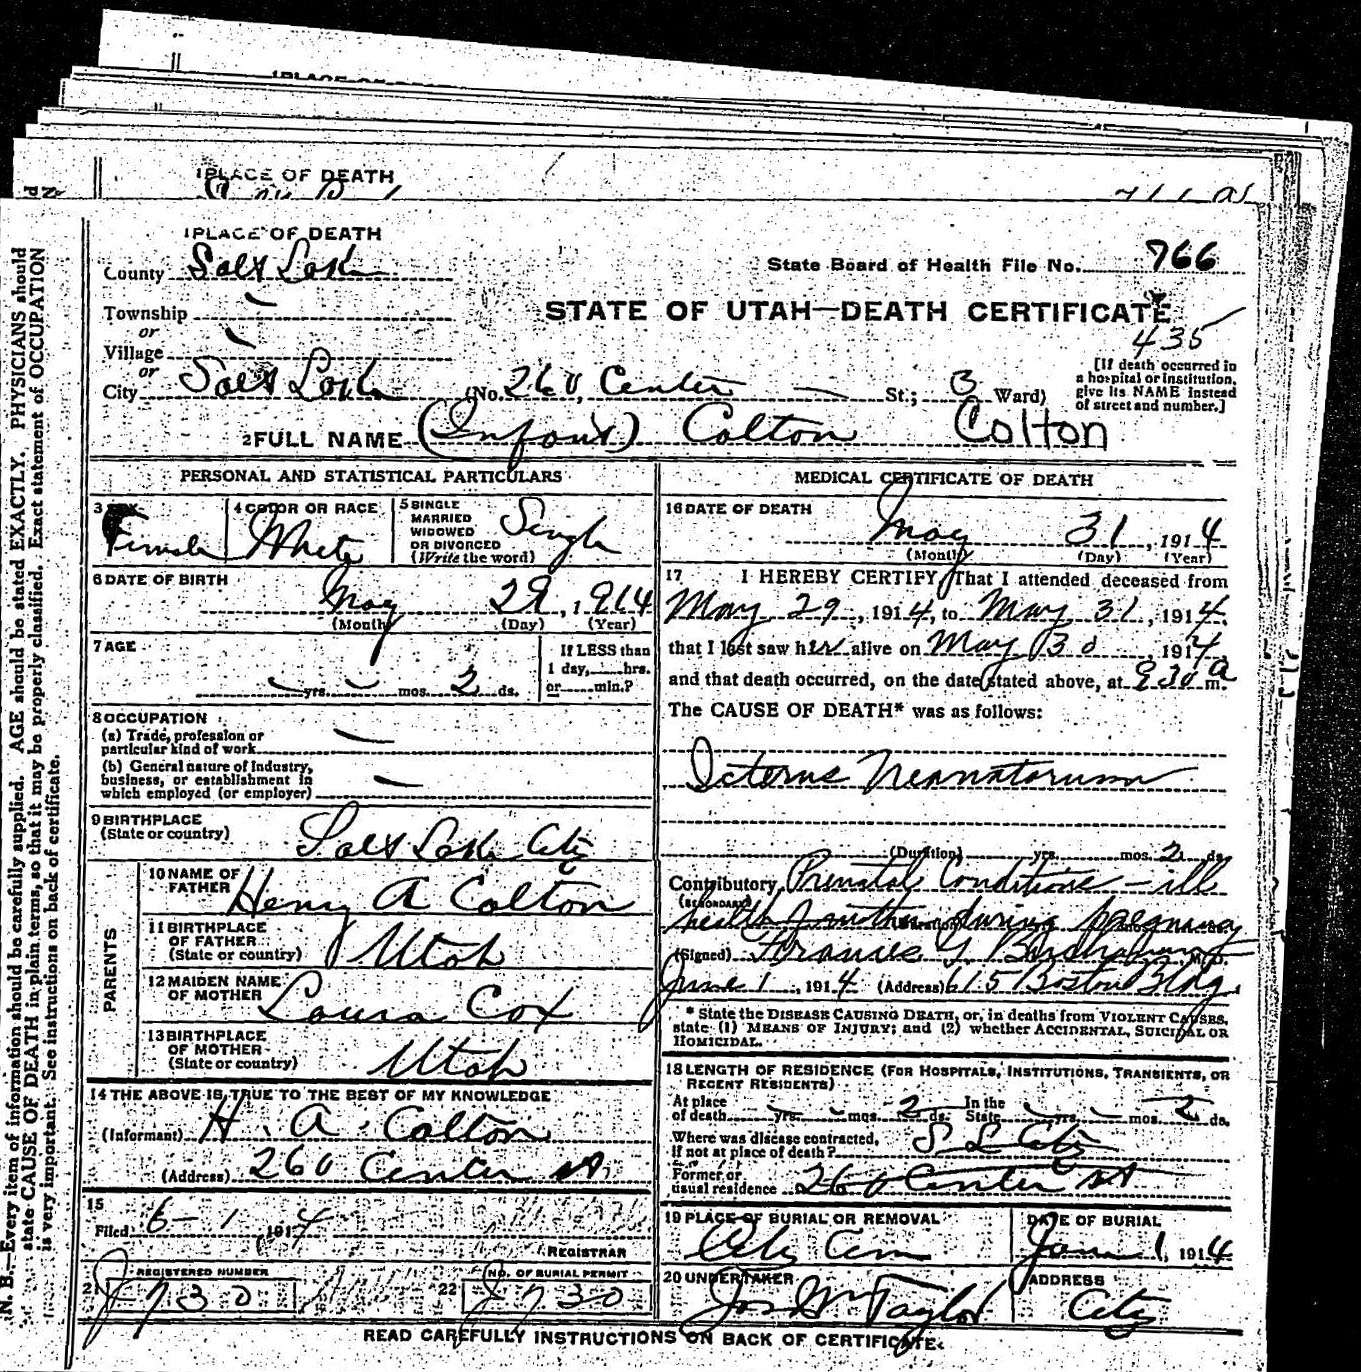 1 PLACE OF DEATH
1 PLACE OF DEATH
County Salt Lake
State Board of Health File No. 766
Township
STATE OF UTAH—DEATH CERTIFICATE
or
435
Village
or
[If death occurred in a hospital or institution, give its NAME instead of street and number.]
City Salt Lake (No. 260, Center St.; 3 Ward)
2 FULL NAME (Infant) Colton Colton
PERSONAL AND STATISTICAL PARTICULARS
3 Female
4 COLOR OR RACE White
5 SINGLE MARRIED WIDOWED OR DIVORCED (Write the word) Single
6 DATE OF BIRTH
May 29, 1914
(Month) (Day) (Year)
7 AGE
yrs. mos. 2 ds.
If LESS than 1 day, hrs. or min.?
8 OCCUPATION
(a) Trade, profession or particular kind of work
(b) General nature of Industry, business, or establishment in which employed (or employer)
9 BIRTHPLACE
(State or country) Salt Lake City
PARENTS
10 NAME OF FATHER Henry A Colton
11 BIRTHPLACE OF FATHER (State or country) Utah
12 MAIDEN NAME OF MOTHER Laura Cox
13 BIRTHPLACE OF MOTHER (State or country) Utah
14 THE ABOVE IS TRUE TO THE BEST OF MY KNOWLEDGE
(Informant) H. A. Colton
(Address) 260 Center st.
15
Filed 6-1, 1914
REGISTRAR
REGISTERED NUMBER
21 J730
22 NO. OF BURIAL PERMIT
J730
MEDICAL CERTIFICATE OF DEATH
16 DATE OF DEATH
May 31, 1914
(Month) (Day) (Year)
17 I HEREBY CERTIFY, That I attended deceased from
May 29, 1914, to May 31, 1914
that I last saw her alive on May 30 1914
and that death occurred, on the date stated above, at 930 a m.
The CAUSE OF DEATH* was as follows:
Icterus Neonatorum
(Duration) yrs. mos. 2 ds.
Contributory Prenatal Conditions - ill
(SECONDARY) health of mother during pregnancy
(Signed) M. D.
June 1, 1914 (Address) 615 Boston Bldg.
* State the DISEASE CAUSING DEATH, or, in deaths from VIOLENT CAUSES,
state (1) MEANS OF INJURY; and (2) whether ACCIDENTAL, SUICIDAL OR
HOMICIDAL.
18 LENGTH OF RESIDENCE (FOR HOSPITALS, INSTITUTIONS, TRANSIENTS, OR
RECENT RESIDENTS)
At place of death yrs. mos. 2 ds. In the State yrs. mos. 2 ds.
Where was disease contracted, if not at place of death? S L City
Former or usual residence 260 Center st
19 PLACE OF BURIAL OR REMOVAL
City Cem
DATE OF BURIAL
June 1, 1914
20 UNDERTAKER
Jos Wm Taylor
ADDRESS
City
READ CAREFULLY INSTRUCTIONS ON BACK OF CERTIFICATE.
N. B.—Every item of information should be carefully supplied. AGE should be stated EXACTLY. PHYSICIANS should
state CAUSE OF DEATH in plain terms, so that it may be properly classified. Exact statement of OCCUPATION
is very important. See instructions on back of certificate.